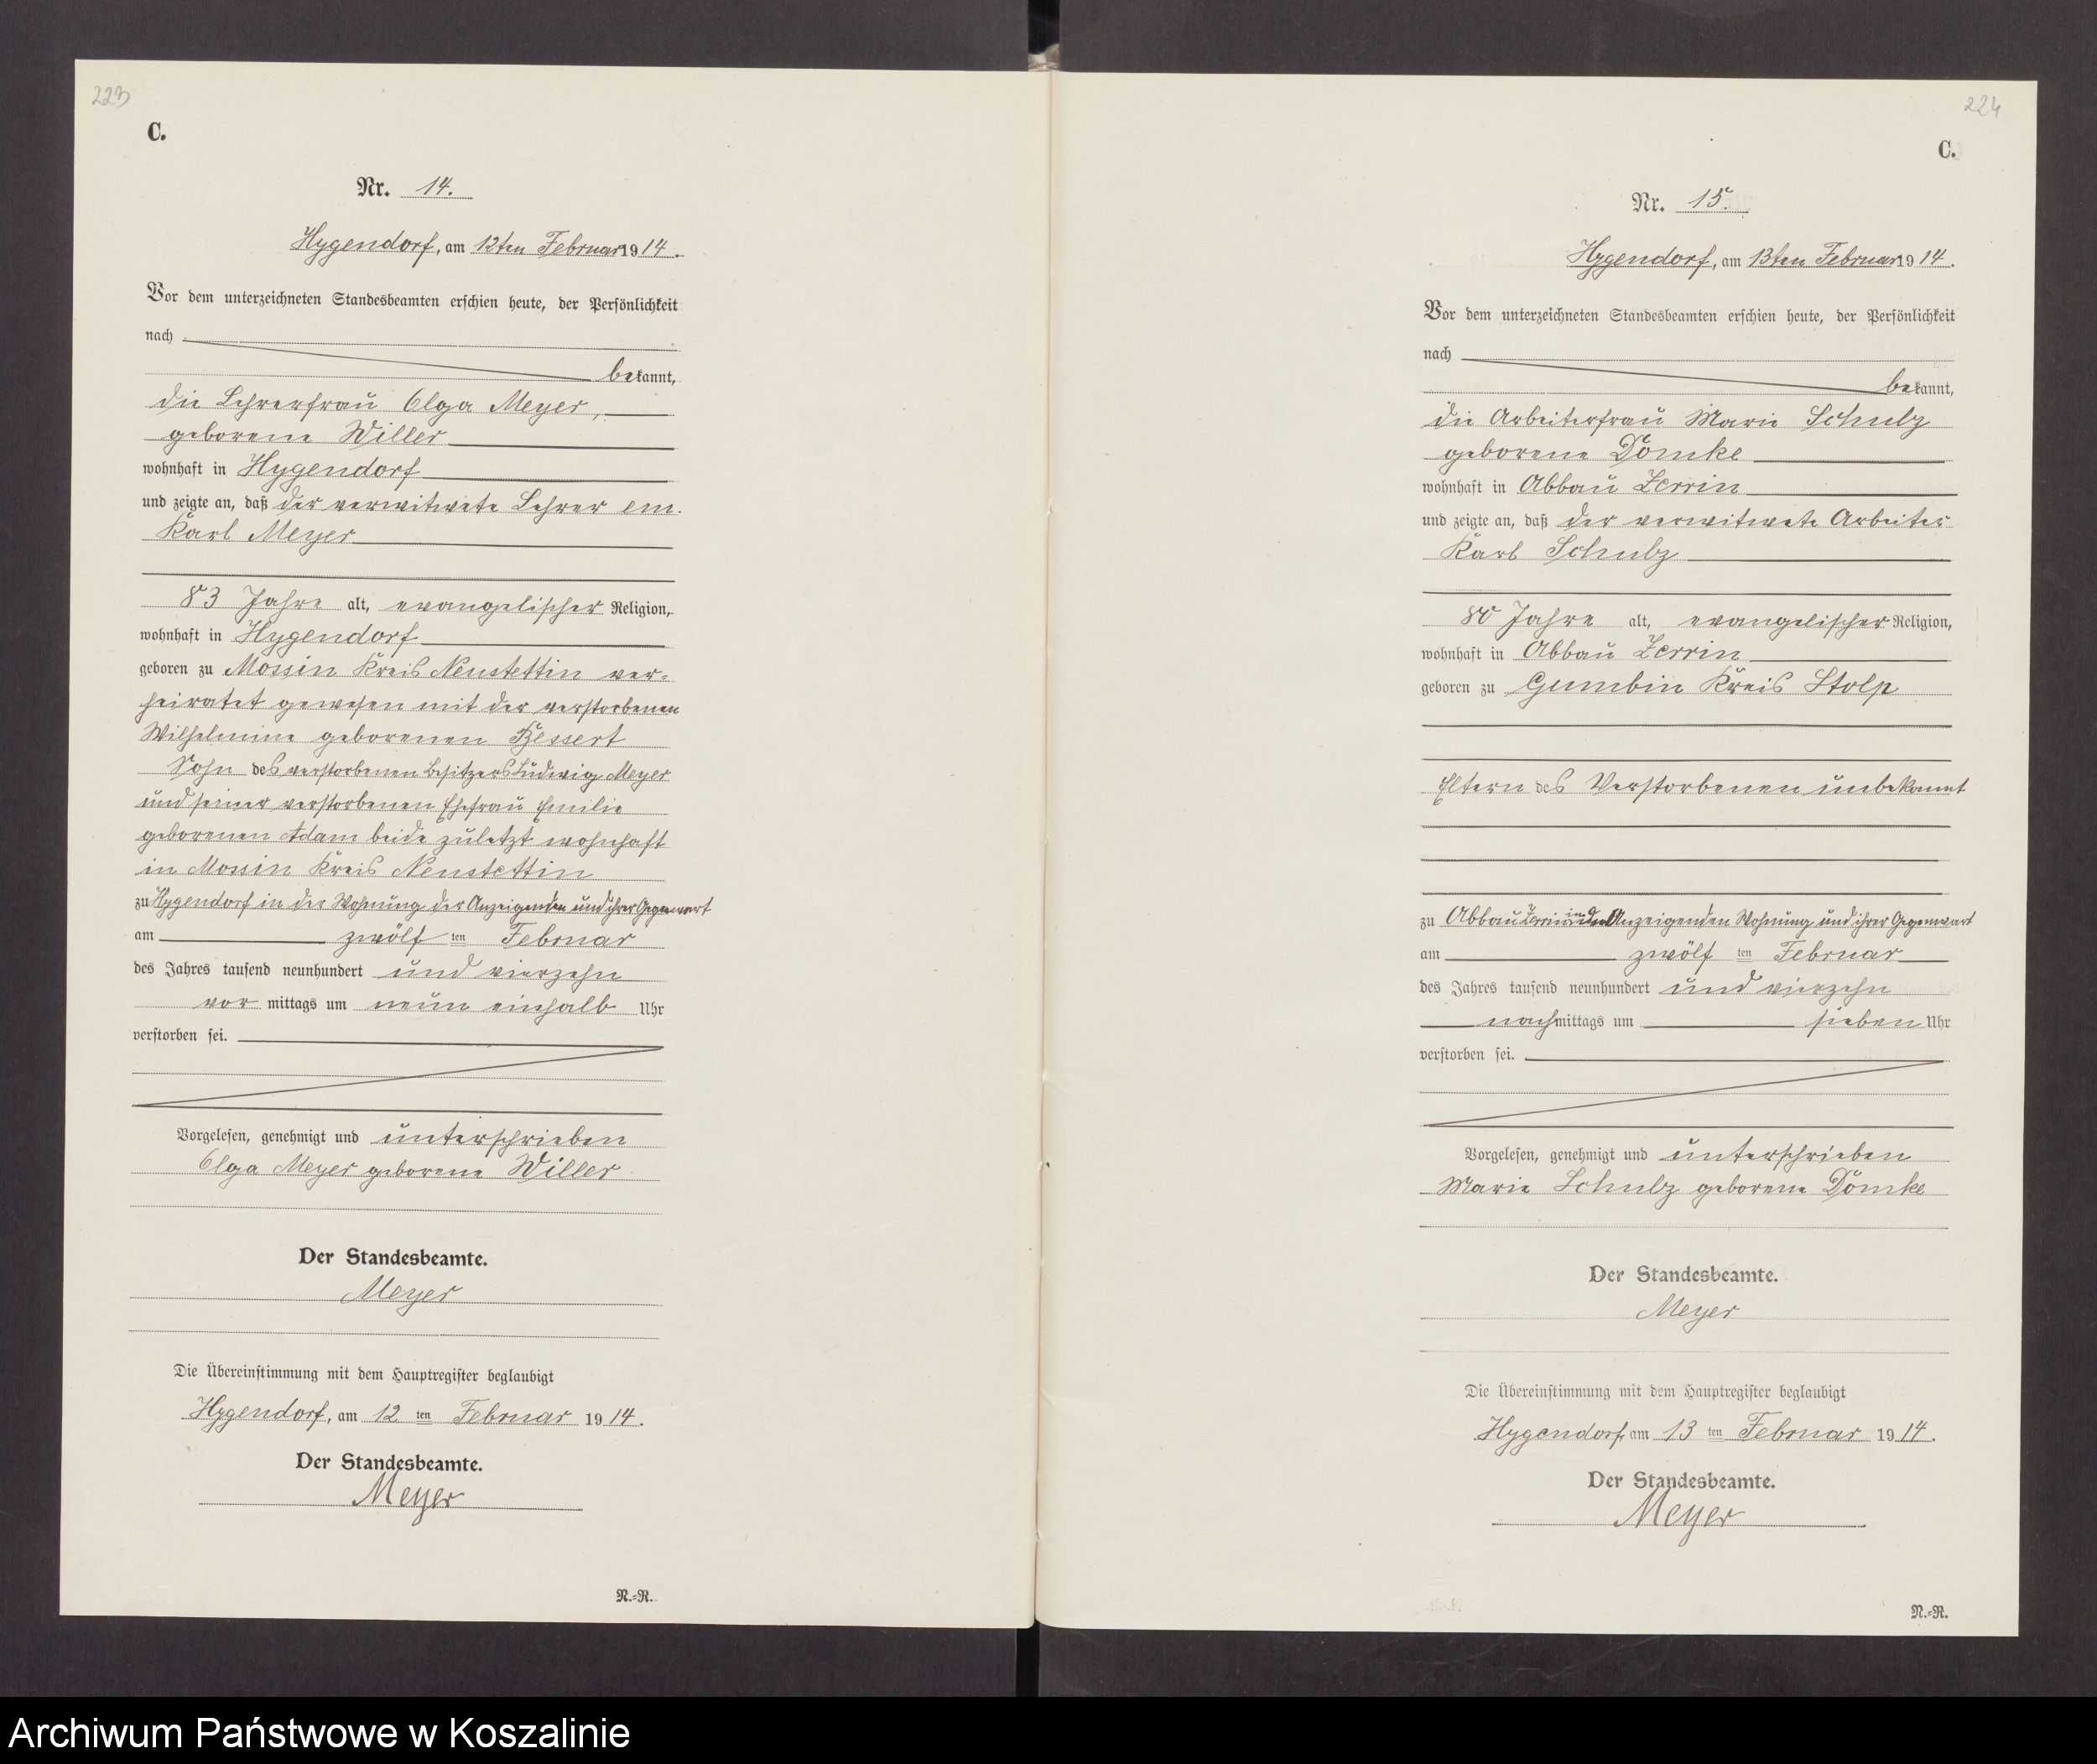 223
C.
Nr. 14.
Hygendorf, am 12ten Februar 1914.
Vor dem unterzeichneten Standesbeamten erschien heute, der Persönlichkeit
nach
bekannt,
die Lehrerfrau Olga Meyer,
geborene Willer
wohnhaft in Hygendorf
und zeigte an, daß der verwitwete Lehrer em.
Karl Meyer
83 Jahre alt, evangelischer Religion,
wohnhaft in Hygendorf
geboren zu Mossin Kreis Neustettin ver-
heiratet gewesen mit der verstorbenen
Wilhelmine geborenen
Sohn des verstorbenen Besitzers Ludwig Meyer
und seiner verstorbenen Ehefrau Emilie
geborenen Adam beide zuletzt wohnhaft
in Mossin Kreis Neustettin
zu Hygendorf in der Wohnung der Anzeigenden und ihrer Gegenwart
am zwölf ten Februar
des Jahres tausend neunhundert und vierzehn
vor mittags um neun einhalb Uhr
verstorben sei.
Vorgelesen, genehmigt und unterschrieben
Olga Meyer geborene Willer
Der Standesbeamte.
Meyer
Die Übereinstimmung mit dem Hauptregister beglaubigt
Hygendorf, am 12 ten Februar 1914.
Der Standesbeamte.
Meyer
N.=R.
224
C.
Nr. 15.
Hygendorf, am 13ten Februar 1914.
Vor dem unterzeichneten Standesbeamten erschien heute, der Persönlichkeit
nach
bekannt,
die Arbeiterfrau Marie Schulz
geborene Dömke
wohnhaft in Abbau Zerrin
und zeigte an, daß der verwitwete Arbeiter
Karl Schulz
80 Jahre alt, evangelischer Religion,
wohnhaft in Abbau Zerrin
geboren zu Gumbin Kreis Stolp
Eltern des Verstorbenen unbekannt
zu Abbau Zerrin in der Anzeigenden Wohnung und ihrer Gegenwart
am zwölf ten Februar
des Jahres tausend neunhundert und vierzehn
nachmittags um sieben Uhr
verstorben sei.
Vorgelesen, genehmigt und unterschrieben
Marie Schulz geborene Dömke
Der Standesbeamte.
Meyer
Die Übereinstimmung mit dem Hauptregister beglaubigt
Hygendorf, am 13 ten Februar 1914.
Der Standesbeamte.
Meyer
N.=R.
Archiwum Państwowe w Koszalinie